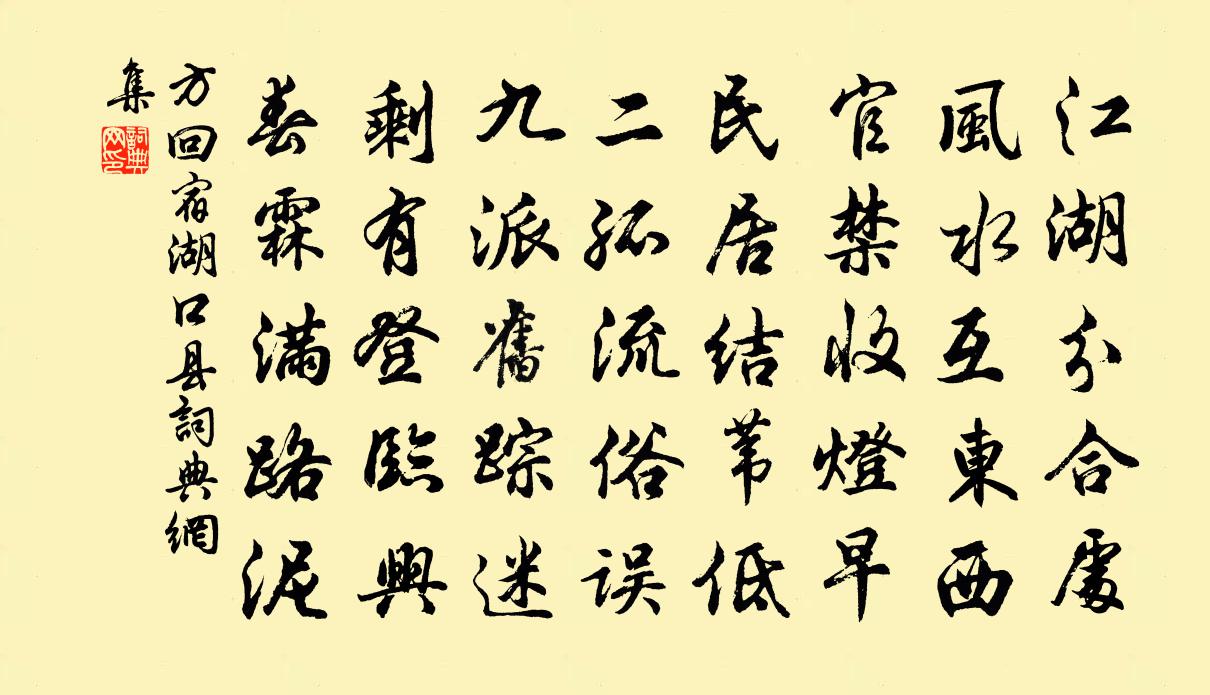 江湖分合處
風水互東西
官禁收燈早
民居结苇低
二孤流俗误
九派舊踪迷
剩有登臨興
春霖满路泥
方回宿湖口县詞典網
集
詞典
网印